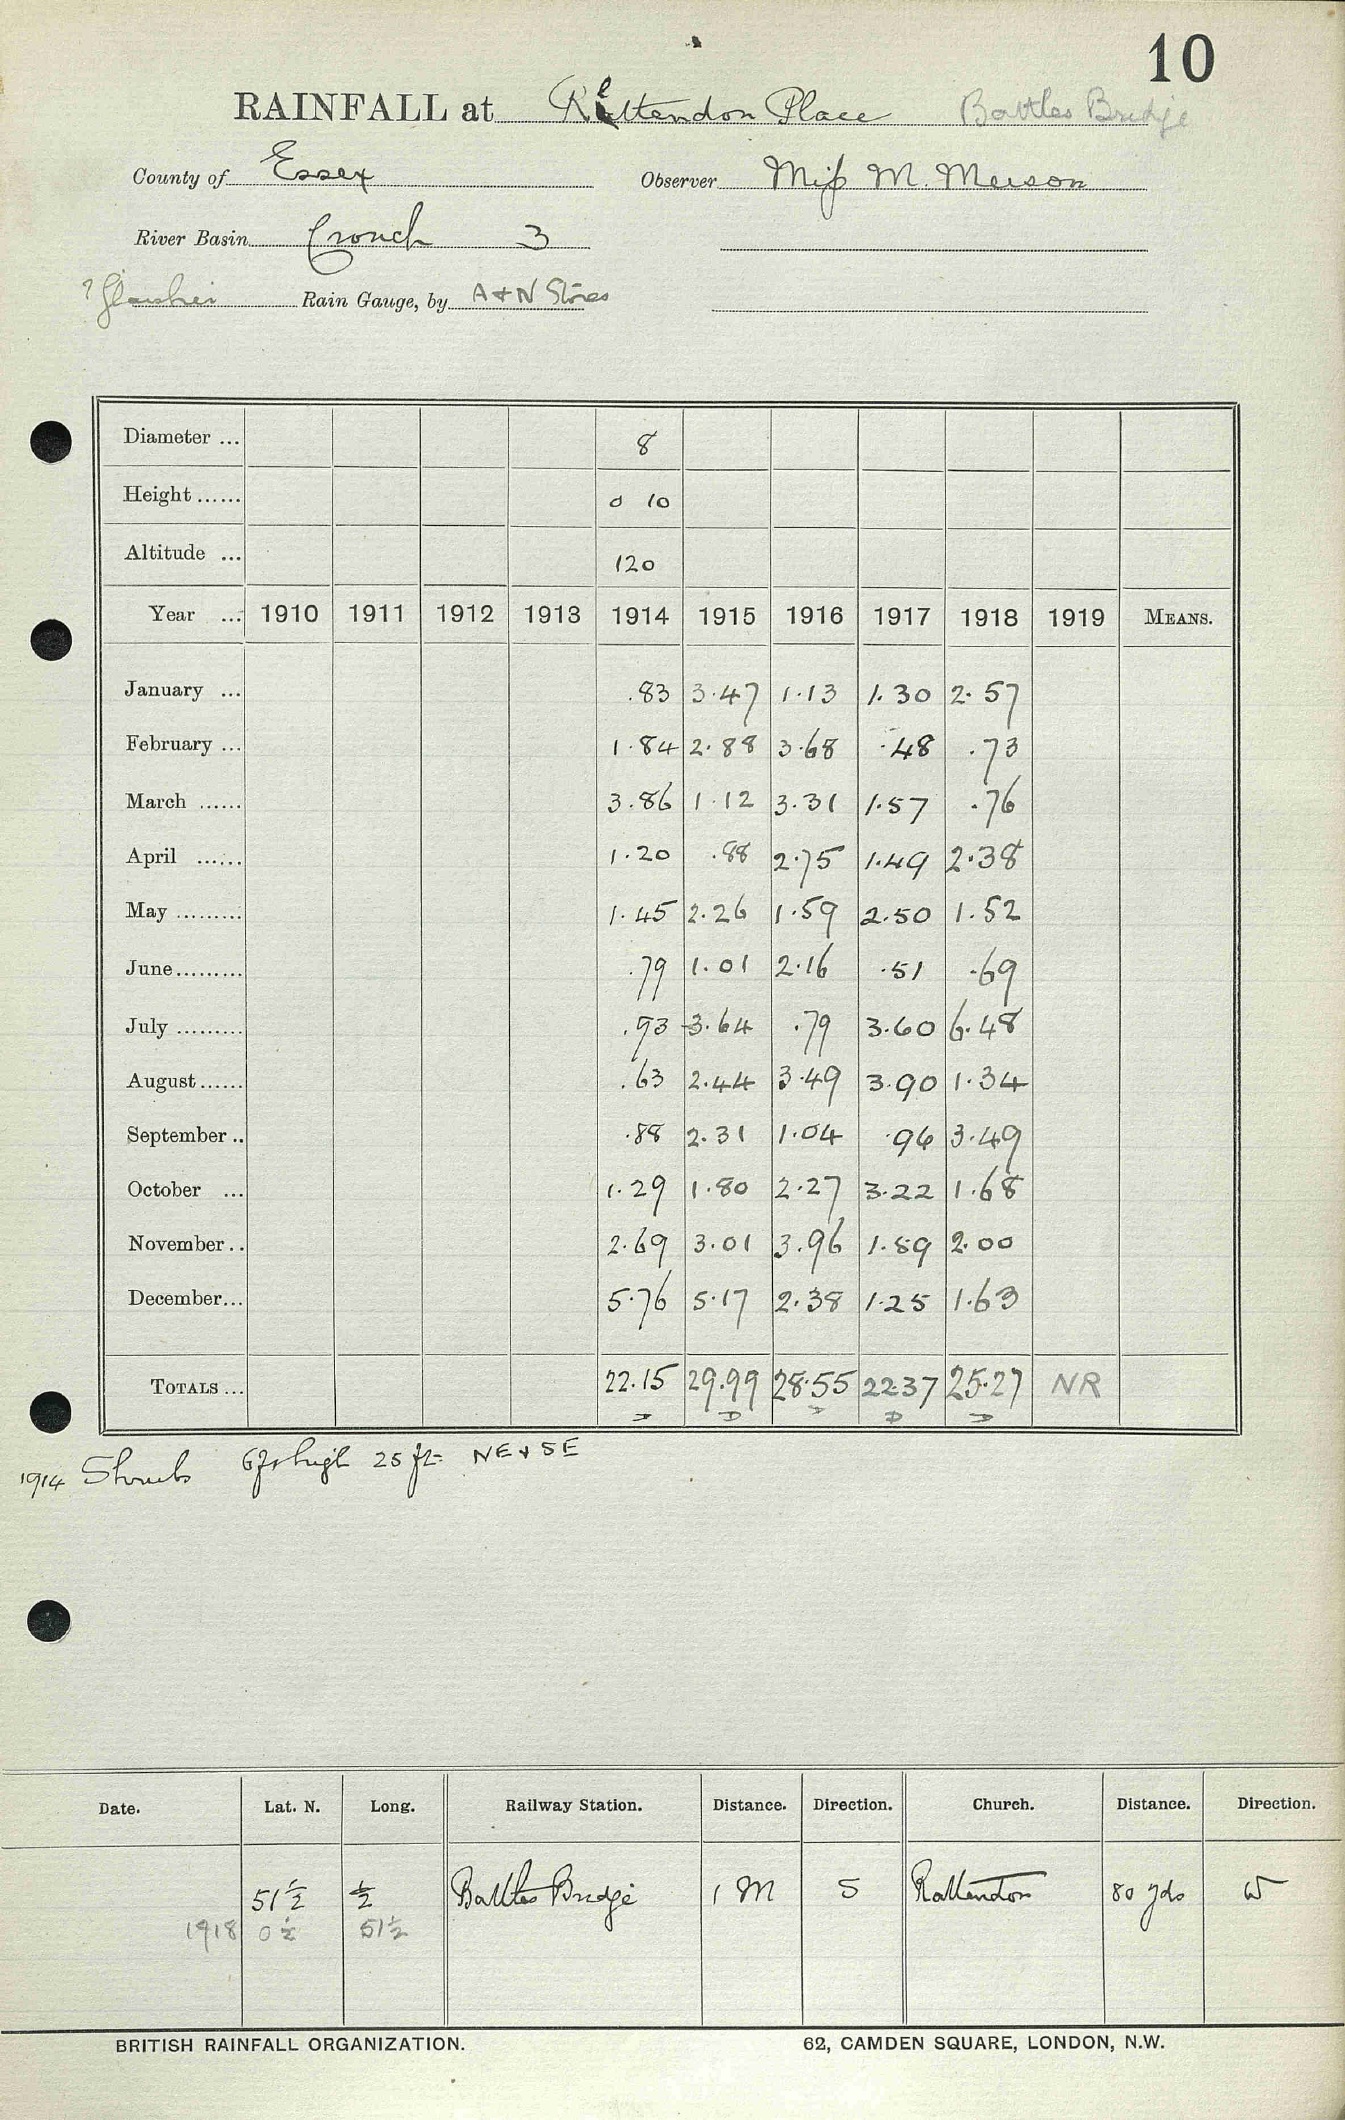 10
RAINFALL at Rettendon Place Battles Bridge
County of Essex Observer Miss M. Meeson
River Basin Crouch 3
? Glaisher Rain Gauge, by A & N Stores
Diameter ... 8
Height ...... 0 10
Altitude ... 120
Year ... 1910 1911 1912 1913 1914 1915 1916 1917 1918 1919 MEANS.
January ... .83 3.47 1.13 1.30 2.57
February ... 1.84 2.88 3.68 .48 .73
March ...... 3.86 1.12 3.31 1.57 .76
April ...... 1.20 .88 2.75 1.49 2.38
May ......... 1.45 2.26 1.59 2.50 1.52
June ......... .79 1.01 2.16 .51 .69
July ......... .93 3.64 .79 3.60 6.48
August ...... .63 2.44 3.49 3.90 1.34
September .. .88 2.31 1.04 .96 3.49
October ... 1.29 1.80 2.27 3.22 1.68
November .. 2.69 3.01 3.96 1.59 2.00
December ... 5.76 5.17 2.38 1.25 1.63
TOTALS ... 22.15 29.99 28.55 22.37 25.27 NR
D D D D D
1914 Shrubs 6ft high 25 ft NE & SE
Date. Lat. N. Long. Railway Station. Distance. Direction. Church. Distance. Direction.
51½ ½ Battles Bridge 1 M S Rattendon 80 yds W
1918 0½ 51½
BRITISH RAINFALL ORGANIZATION. 62, CAMDEN SQUARE, LONDON, N.W.